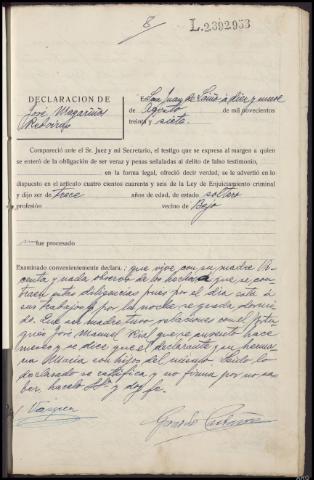 8
L.2392953
DECLARACION DE
José Magariños
Reboiras
En San Juan de Laiño a diez y nueve
de Agosto de mil novecientos
treinta y siete.
Compareció ante el Sr. Juez y mi Secretario, el testigo que se expresa al margen a quien
se enteró de la obligación de ser veraz y penas señaladas al delito de falso testimonio,
en la forma legal, ofreció decir verdad, se le advertió en lo
dispuesto en el artículo cuatro cientos cuarenta y seis de la Ley de Enjuiciamiento criminal
y dijo ser de trece años de edad, de estado soltero
profesión vecino de Bejo
no fue procesado
Examinado convenientemente declara: que vive con su madre Vi-
centa y nada observó de los hechos a que se con-
traen estas diligencias pues por el día está a
sus trabajos y por la noche se queda dormi-
do. Que su madre tuvo relaciones con el
que José Manuel Rial que se ausentó hace
tiempo y se dice que el declarante y su herma-
na María son hijos del mismo. Leído lo
declarado se ratifica y no firma por no sa-
ber, hácelo S.Sª y doy fe.
Vázquez